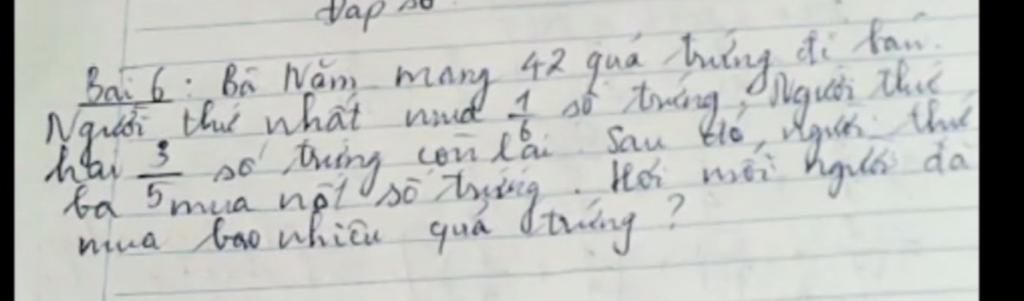 Đáp số
Bài 6: Bà Năm mang 42 quả trứng đi bán.
Người thứ nhất mua 1/6 số trứng, Người thứ
hai 3/5 số trứng còn lại. Sau đó, người thứ
ba mua nốt số trứng. Hỏi mỗi người đã
mua bao nhiêu quả trứng?